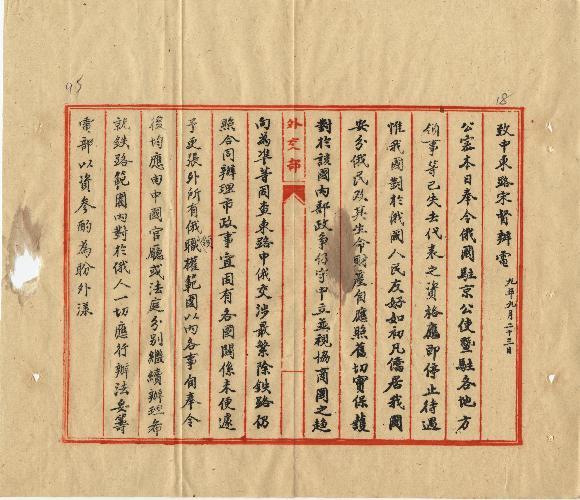 致中東路宋督辦電 九年九月二十三日
公密本日奉令俄國駐京公使暨駐各地方
領事等已失去代表之資格應即停止待遇
惟我國對於俄國人民友好如初凡僑居我國
安分俄民及其生命財產自應照舊切實保護
對於該國內部政爭仍守中立並視協商國之趨
外交部
向為準等因查東路中俄交涉最繁除鐵路仍
照合同辦理市政事宜因有各國關係未便遽
予更張外所有俄領職權範圍以內各事自奉令
後均應由中國官廳或法庭分別繼續辦理希
就鐵路範圍內對於俄人一切應行辦法妥籌
電部以資參酌為盼外漾
18
95